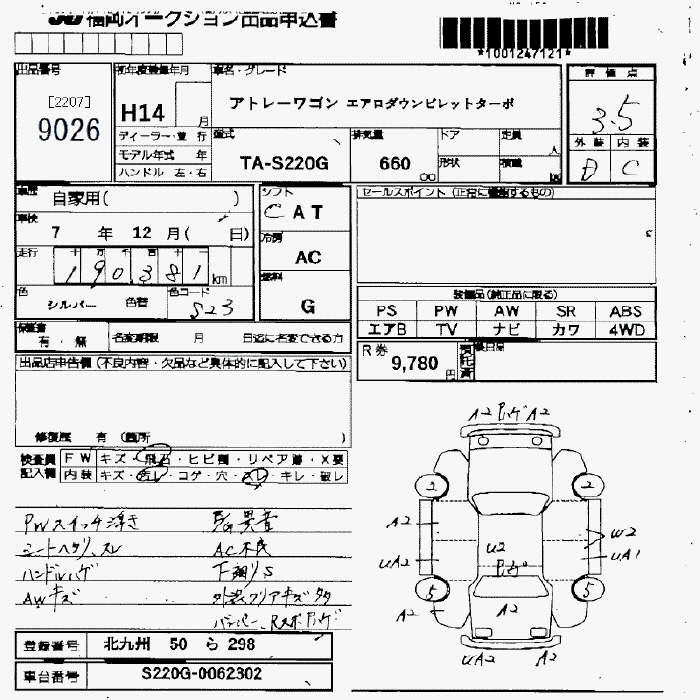 JU 福岡オークション出品申込書
*1001247121*
出品番号
[2207]
9026
初年度登録年月
H14 月
ディーラー・並 行
モデル年式 年
ハンドル 左・右
車名・グレード
アトレーワゴン エアロダウンビレットターボ
型式
TA-S220G
排気量
660
cc
ドア
形状
定員
人
積載
kg
評 価 点
3.5
外 装 内 装
D C
車歴
自家用( )
車検
7 年 12 月( 日)
走行
十 万 千 百 十
190381 km
色
シルバー 色替
色コード
S23
シフト
C A T
冷房
AC
燃料
G
セールスポイント (正常に機能するもの)
装備品(純正品に限る)
PS PW AW SR ABS
エアB TV ナビ カワ 4WD
保証書
有・無
名変期限 月 日迄に名変できる方
R券
9,780 円
預託済
出品店申告欄 (不良内容・欠品など具体的に記入して下さい)
修復歴 有 (箇所 )
検査員記入欄
F W キズ・飛石・ヒビ割・リペア跡・X要
内装 キズ・汚レ・コゲ・穴・スレ・キレ・破レ
PWスイッチ浮き
シートヘタリ、スレ
ハンドルハゲ
AWキズ
異音
AC不良
下廻りS
外装クリアキズタタ
バンパー、Rスポハゲ
A2 ハゲ A2
2 2
A2
UA2
W2
UA1
U2
ハゲ
5 5
A2
A2
UA2 A2
登録番号 北九州 50 ら 298
車台番号 S220G-0062302